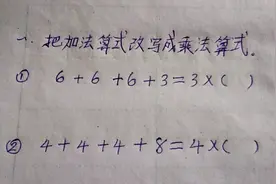 一. 把加法算式改写成乘法算式。
① 6+6+6+3=3×( )
② 4+4+4+8=4×( )